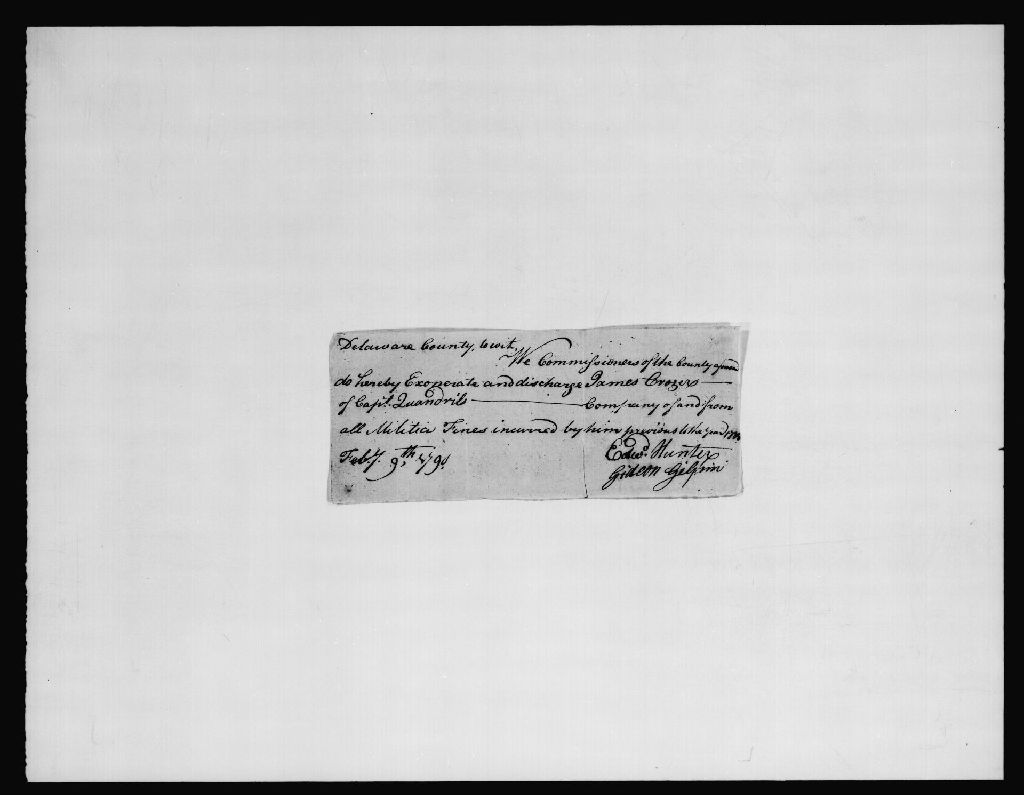 Delaware County, towit,
We Commissioners of the County
do hereby Exonerate and discharge James Crozer
of Capt. Quandrils Company of and from
all Militia Fines incurred by him previous to the year
Feby. 9th, 1791
Edwd. Hunter
Gideon Gilpin